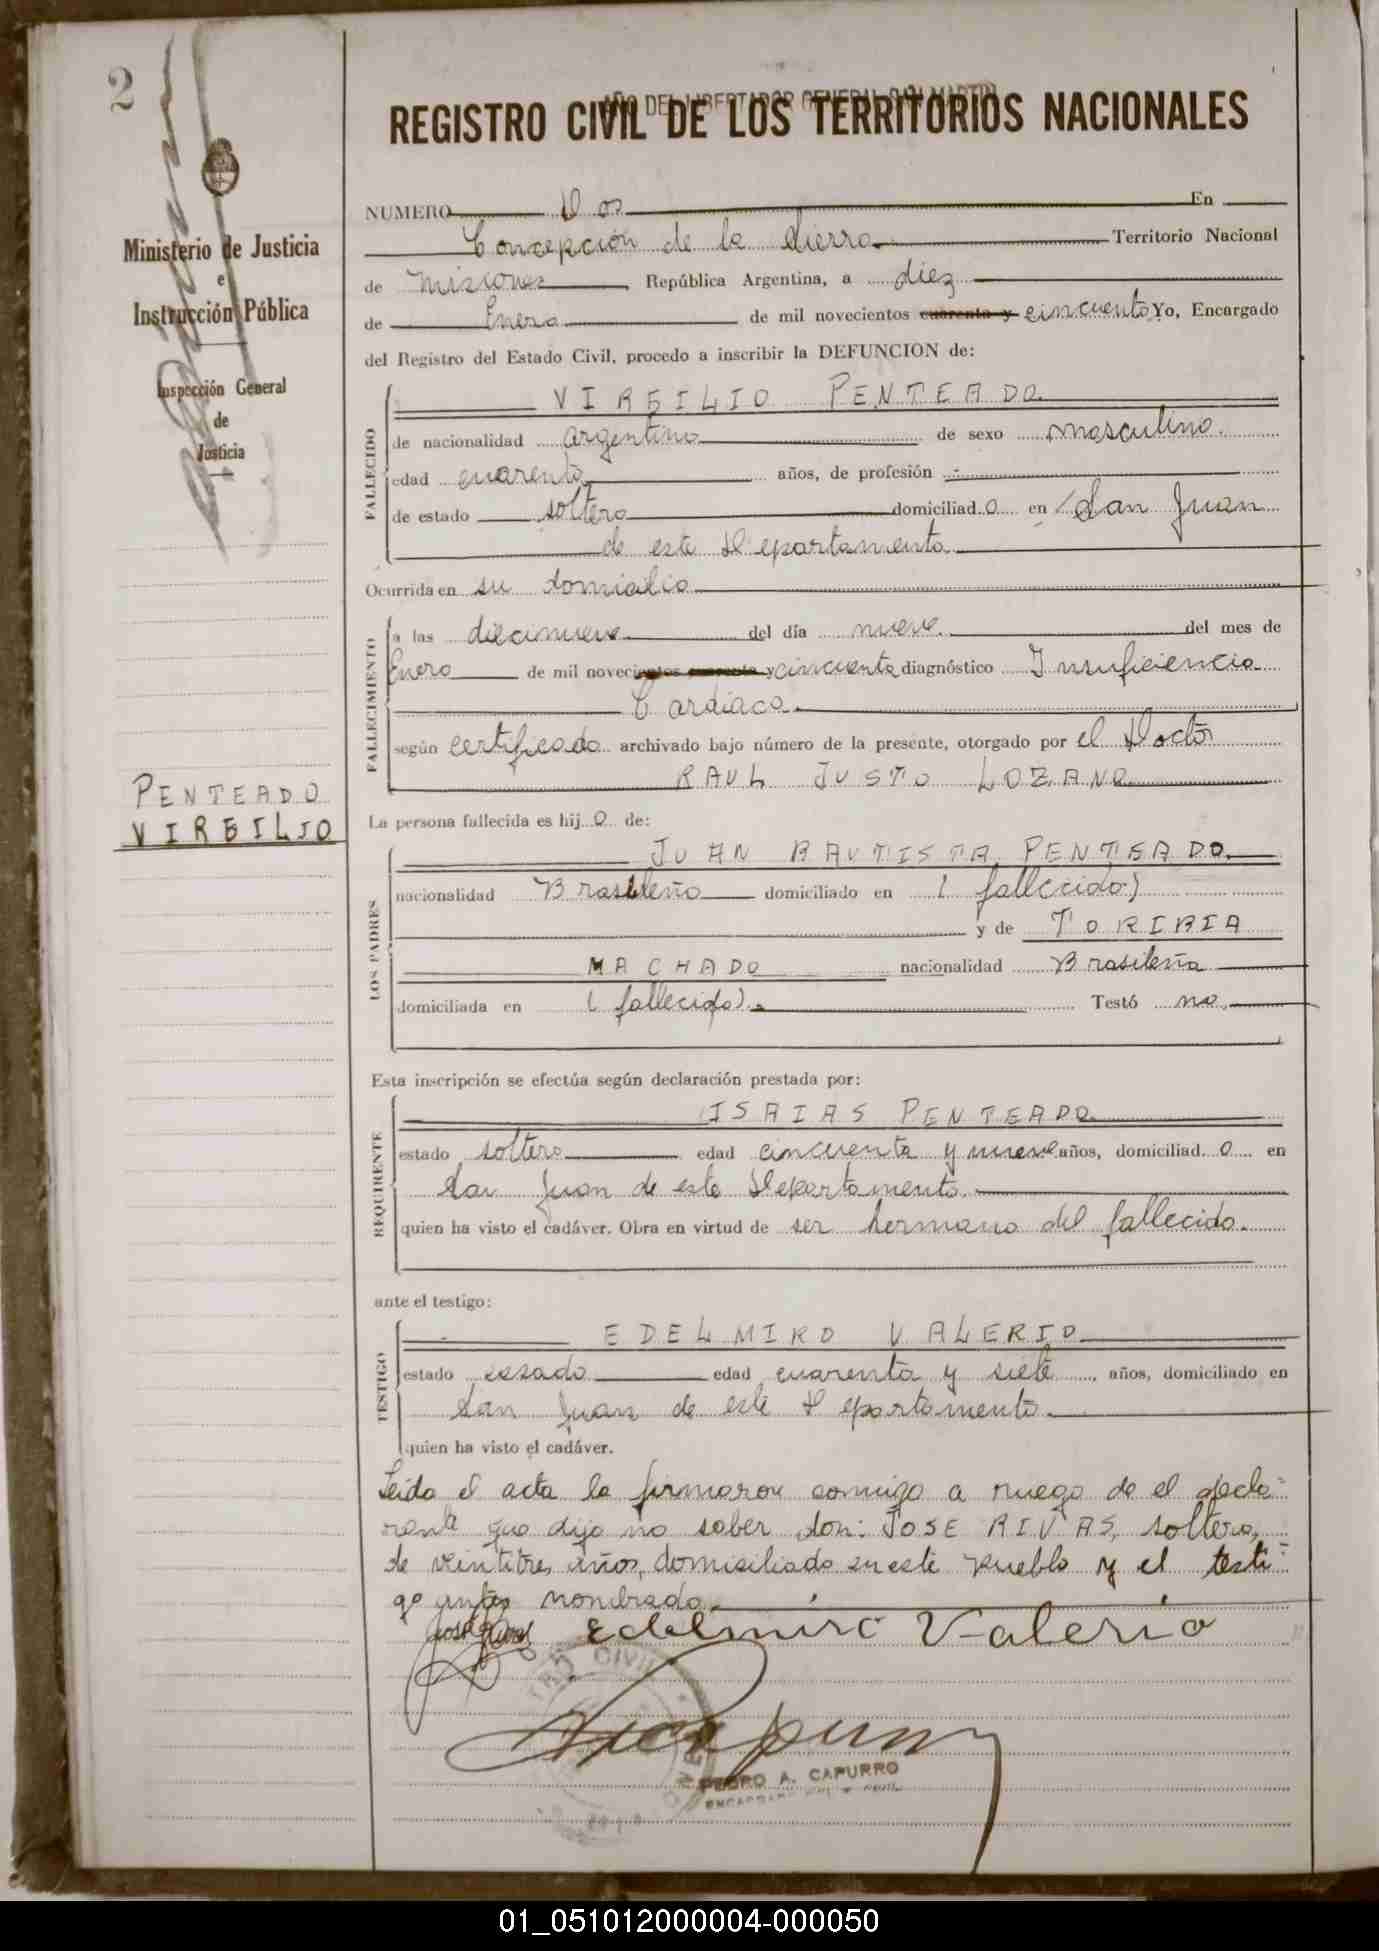 2
AÑO DEL LIBERTADOR GENERAL SAN MARTIN
REGISTRO CIVIL DE LOS TERRITORIOS NACIONALES
Ministerio de Justicia
e
Instrucción Pública
Inspección General
de
Justicia
NUMERO Dos En
Concepción de la Sierra Territorio Nacional
de Misiones República Argentina, a diez
de Enero de mil novecientos cuarenta y cincuenta Yo, Encargado
del Registro del Estado Civil, procedo a inscribir la DEFUNCION de:
FALLECIDO
VIRGILIO PENTEADO
de nacionalidad argentino de sexo masculino.
edad cuarenta años, de profesión -.-
de estado soltero domiciliad o en San Juan
de este Departamento
Ocurrida en su domicilio
FALLECIMIENTO
a las diecinueve del día nueve del mes de
Enero de mil novecientos cuarenta y cincuenta diagnóstico Insuficiencia
Cardiaca
según certificado archivado bajo número de la presente, otorgado por el Doctor
RAUL JUSTO LOZANO
PENTEADO
VIRGILIO
La persona fallecida es hij o de:
LOS PADRES
JUAN BAUTISTA PENTEADO.
nacionalidad Brasileño domiciliado en (fallecido)
y de TORIBIA
MACHADO nacionalidad Brasileña
domiciliada en (fallecido). Testó no.
Esta inscripción se efectúa según declaración prestada por:
REQUIRENTE
ISAIAS PENTEADO
estado soltero edad cincuenta y nueve años, domiciliad o en
San Juan de este Departamento.
quien ha visto el cadáver. Obra en virtud de ser hermano del fallecido.
ante el testigo:
TESTIGO
EDELMIRO VALERIO
estado casado edad cuarenta y siete años, domiciliado en
San Juan de este Departamento.
quien ha visto el cadáver.
Leida el acta la firmaron conmigo a ruego de el decla-
rante que dijo no saber don: JOSE RIVAS, soltero,
de veintitres años, domiciliado en este pueblo y el testi-
go antes nombrado.
Jose Rivas Edelmiro Valerio
CIVIL
PEDRO A. CAPURRO
01_051012000004-000050